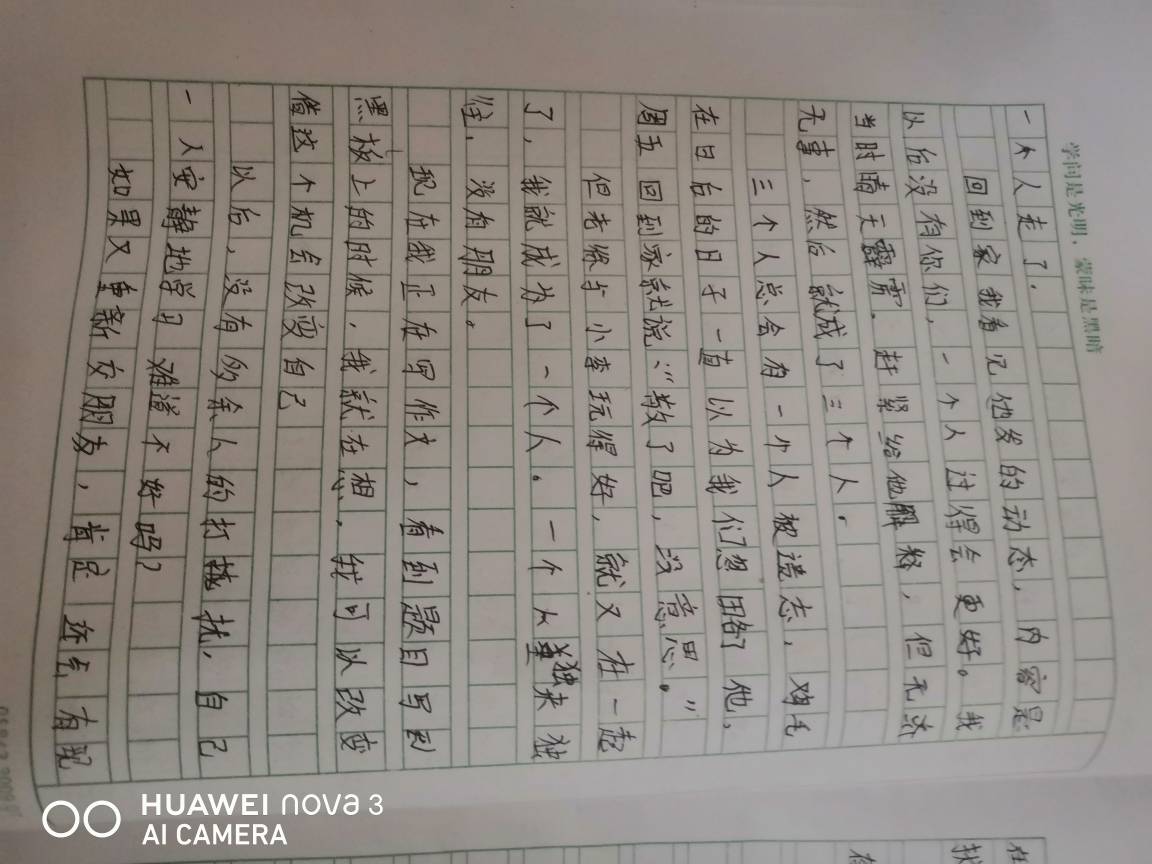 学问是光明，蒙昧是黑暗
一个人走了.
回到家我看见他发的动态，内容是
以后没有你们，一个人过得会更好。我
当时晴天霹雳．赶紧给他解释，但无济
无事，然后就成了三个人．
三个人总会有一个人被遗忘，鸡毛
在日后的日子一直以为我们忽略了他，
周五回到家就说：“散了吧，没意思。”
但老徐与小李玩得好，就又在一起
了，我就成为了一个人。一个人独来独
往，没有朋友。
现在我正在写作文，看到题目写到
黑板上的时候．我就在想，我可以改变
借这个机会改变自己
以后，没有多余人的打扰，自己
一人安静地学习难道不好吗？
如果又重新交朋友，肯定还会有现
HUAWEI nova 3
AI CAMERA